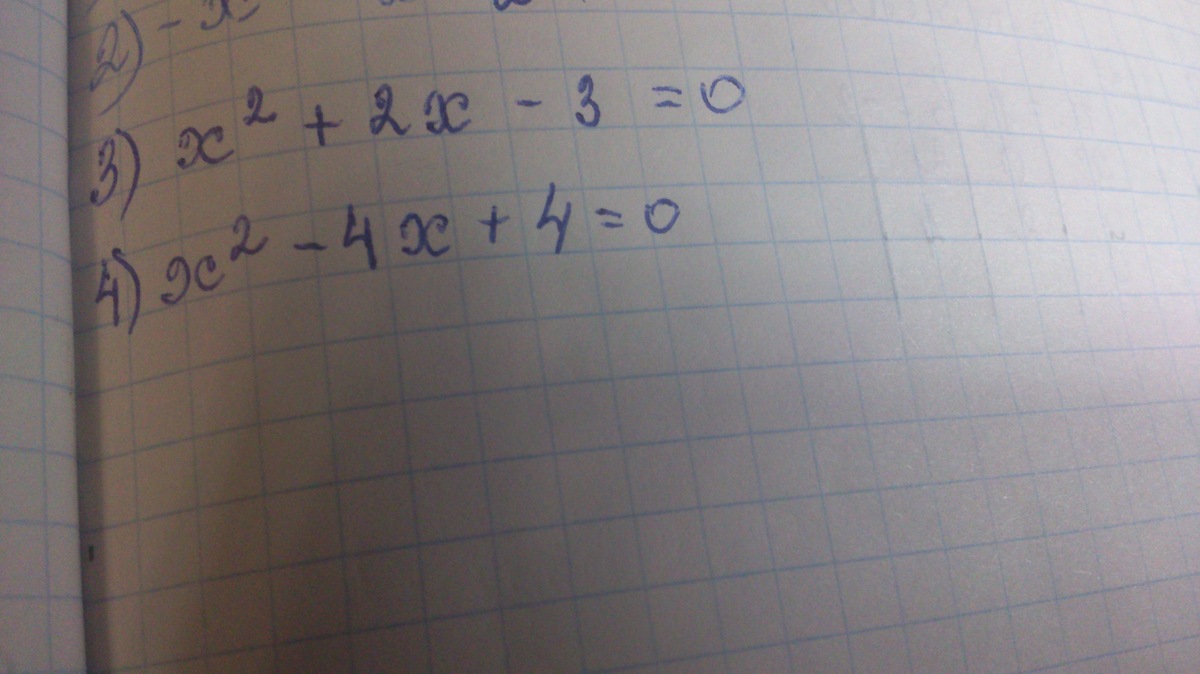 2) -x
3) x² + 2x - 3 = 0
4) x² - 4x + 4 = 0